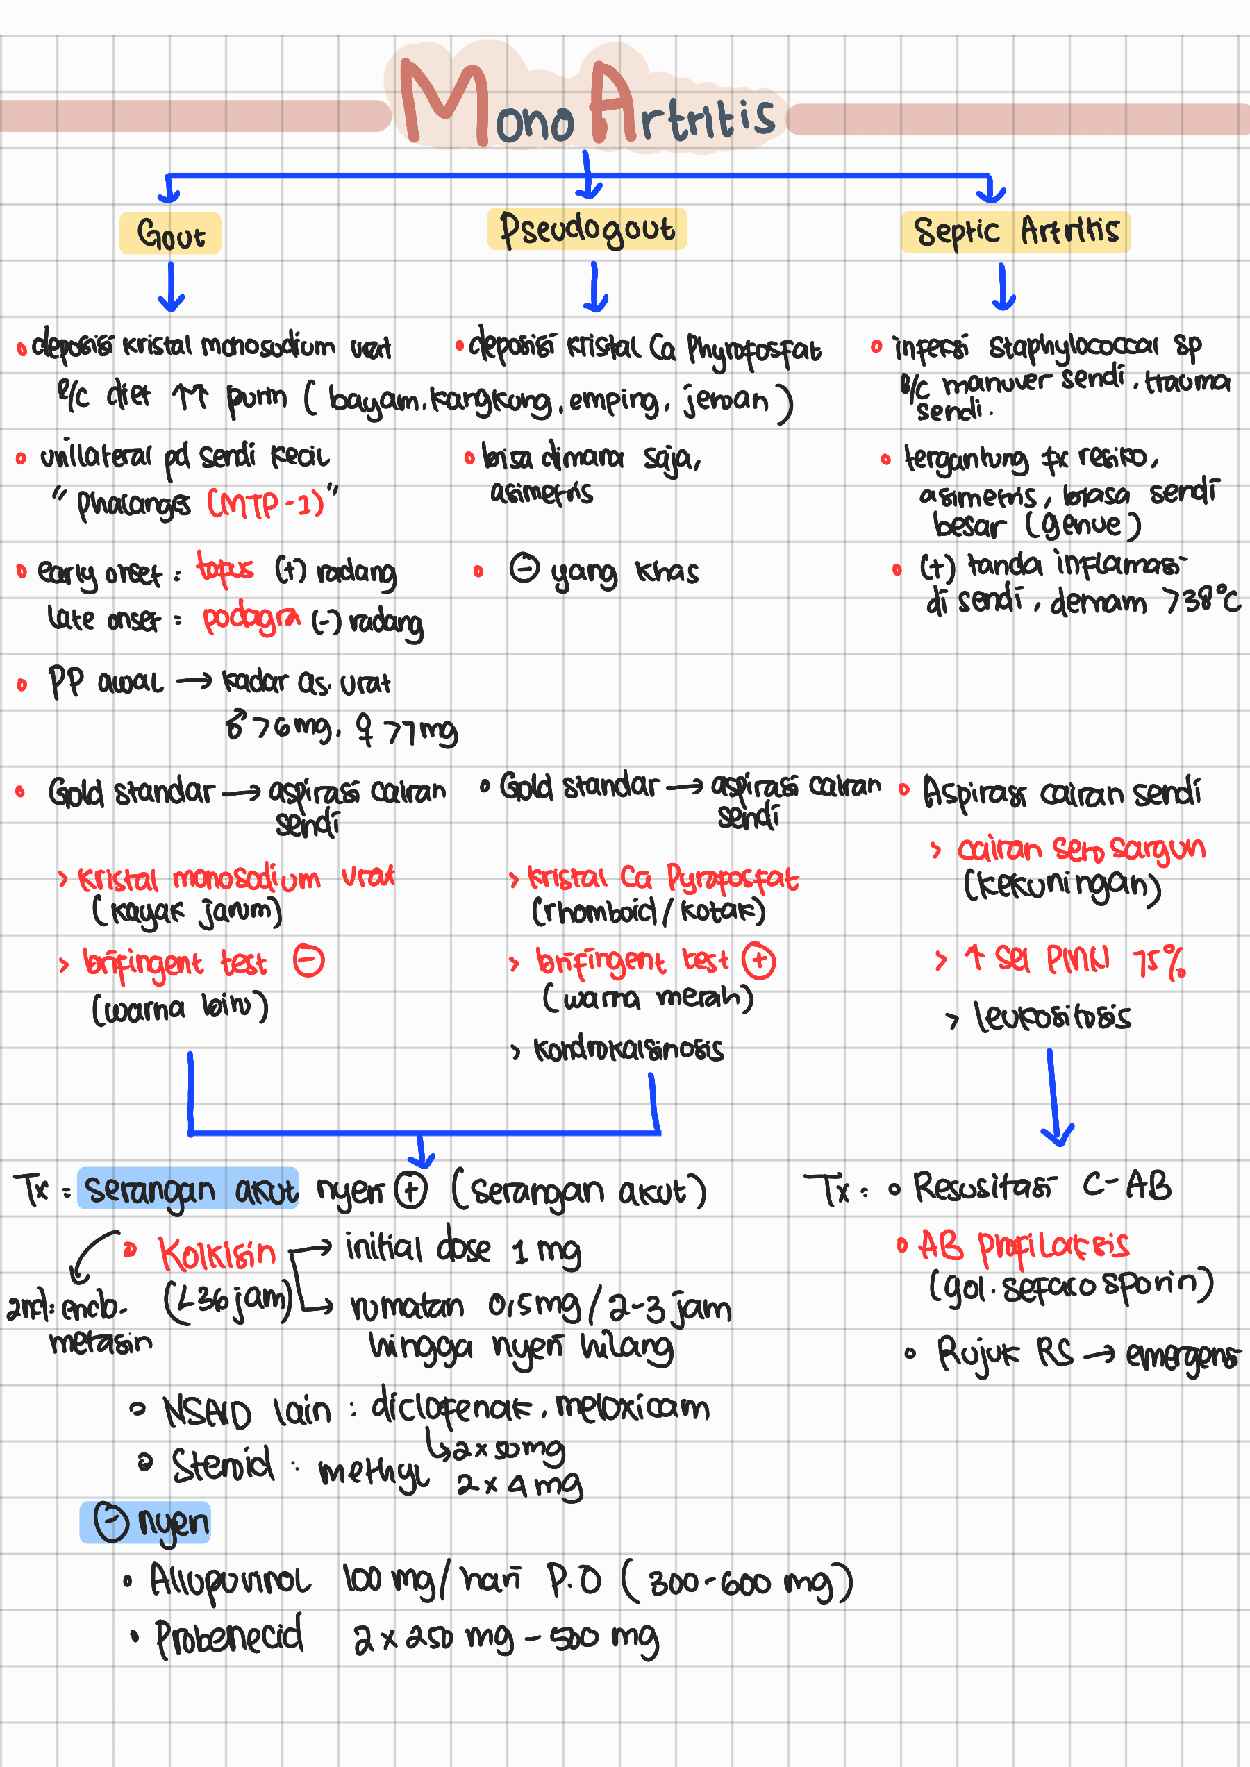 MonoArtritis
Gout
Pseudogout
Septic Artritis
• deposisi kristal monosodium urat
• deposisi kristal Ca Phyrofosfat
e/c diet ↑↑ purin ( bayam, kangkung, emping, jeroan )
• unilateral pd sendi kecil
" phalanges (MTP-1)"
• bisa dimana saja,
asimetris
• early onset : topus (+) radang
late onset = podagra (-) radang
• ⊖ yang khas
• PP awal → kadar as. urat
♂ >6 mg, ♀ >7 mg
• Gold standar → aspirasi cairan
sendi
> kristal monosodium urat
(kayak jarum)
> brifingent test ⊖
(warna biru)
• Gold standar → aspirasi cairan
sendi
> kristal Ca Pyrofosfat
(rhomboid/kotak)
> brifingent test ⊕
(warna merah)
> kondrokalsinosis
• infeksi Staphylococcal sp
e/c manuver sendi, trauma
sendi.
• tergantung fx resiko,
asimetris, biasa sendi
besar (genue)
• (+) tanda inflamasi
di sendi, demam >38°C
• Aspirasi cairan sendi
> cairan serosargun
(kekuningan)
> ↑ sel PMN 75%
> leukositosis
Tx = serangan akut nyeri ⊕ (serangan akut)
• Kolkisin → initial dose 1 mg
(<36 jam) → rumatan 0,5mg/2-3 jam
hingga nyeri hilang
2nd: endo-
metasin
• NSAID lain : diclofenak, meloxicam
↳ 2 x 50 mg
• Steroid : methyl 2 x 4 mg
⊖ nyeri
• Allopurinol 100 mg/hari P.O (300-600 mg)
• Probenecid 2 x 250 mg - 500 mg
Tx = • Resusitasi C-AB
• AB profilaksis
(gol. sefarosporin)
• Rujuk RS → emergens